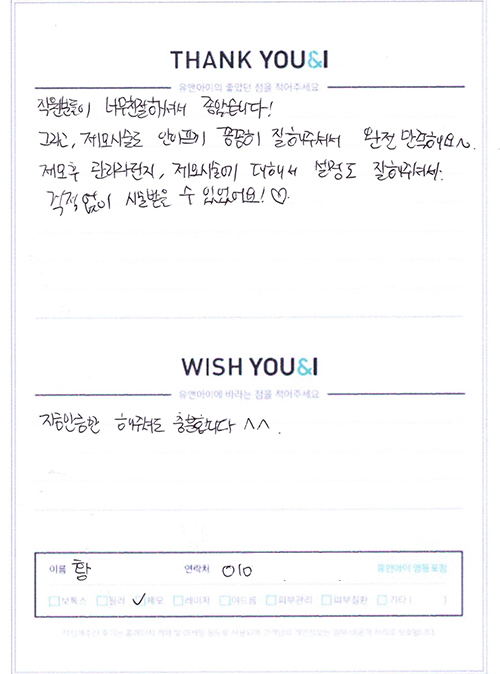 THANK YOU&I
유앤아이의 좋았던 점을 적어주세요
직원분들이 너무친절하셔서 좋았습니다!
그리고, 제모시술도 안아프기 꼼꼼히 잘해주셔서 완전 만족해요~
제모후 관리라던지, 제모시술에 대해서 설명도 잘해주셔서.
걱정 없이 시술받을 수 있었어요! ♡
WISH YOU&I
유앤아이에 바라는 점을 적어주세요
지금만큼만 해주셔도 충분합니다 ^^.
이름 황 연락처 010 유앤아이 영등포점
보톡스 필러 ✓제모 레이저 여드름 피부관리 피부질환 기타 ( )